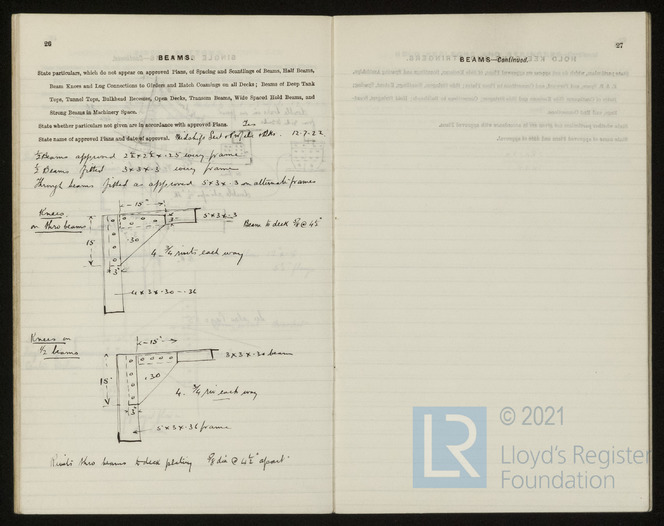 26
BEAMS.
State particulars, which do not appear on approved Plans, of Spacing and Scantlings of Beams, Half Beams,
Beam Knees and Lug Connections to Girders and Hatch Coamings on all Decks; Beams of Deep Tank
Tops, Tunnel Tops, Bulkhead Recesses, Open Decks, Transom Beams, Wide Spaced Hold Beams, and
Strong Beams in Machinery Space.
State whether particulars not given are in accordance with approved Plans. Yes
State name of approved Plans and date of approval. Midship Sect & Profile & Dks. 12.7.22
½ Beams approved 2½ × 2½ × .25 every frame
½ Beams fitted 3 × 3 × .3 every frame
Through beams fitted as approved 5 × 3 × .3 on alternate frames
Knees
on thro beams
15"
5 × 3 × .3
Beam to deck ⅝ @ 4½"
15"
.30
4 - ¾ rivets each way
3"
4 × 3 × .30 - .36
Knees on
½ beams
15"
3 × 3 × .30 beam
15"
.30
4 - ¾ riv each way
3"
5 × 3 × .36 frame
Rivets thro beams to deck plating ⅝ dia @ 4½" apart.
27
BEAMS—Continued.
LR
© 2021
Lloyd's Register
Foundation